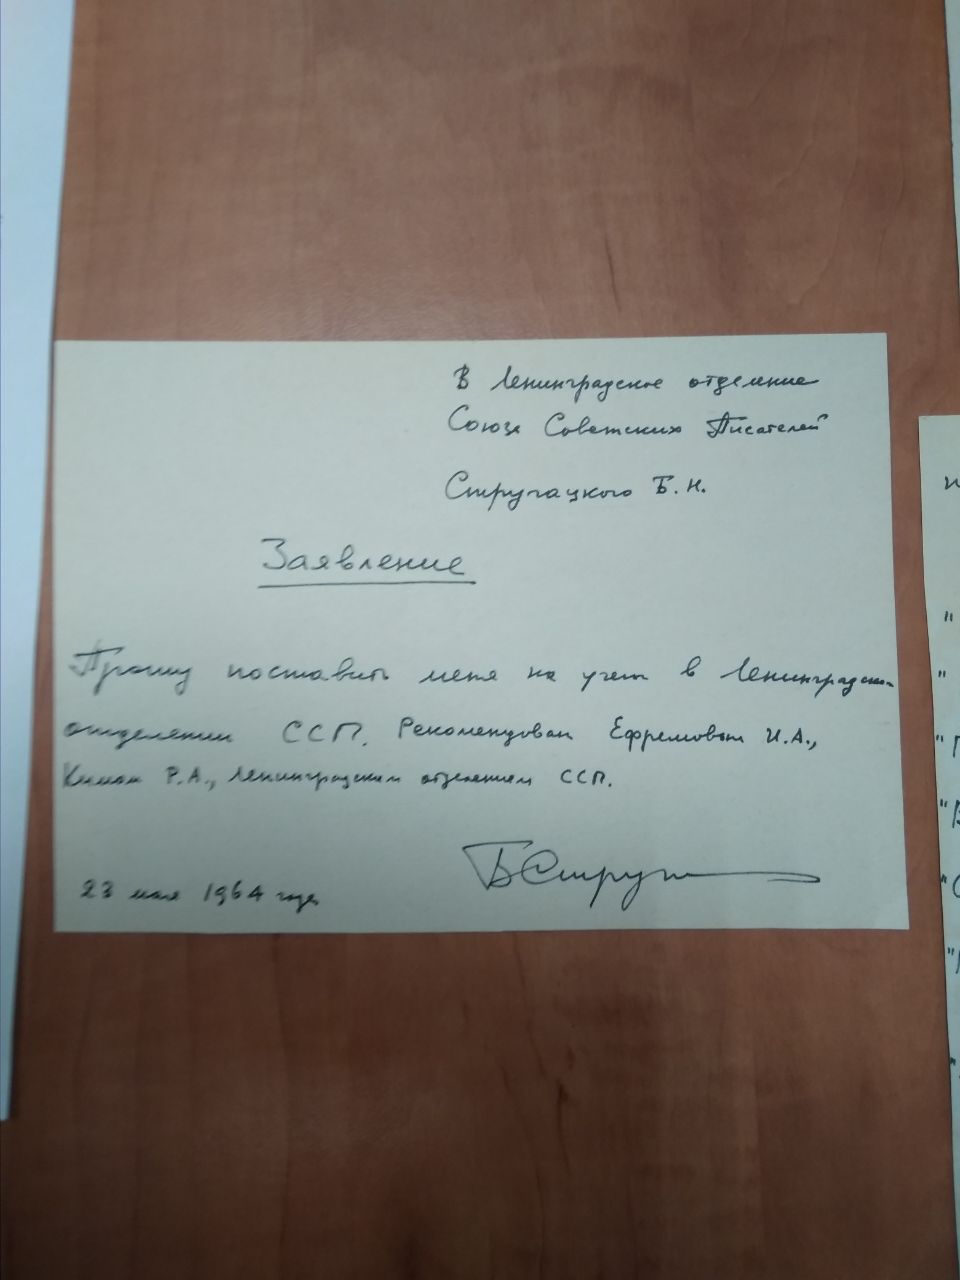 В Ленинградское отделение
Союза Советских Писателей
Стругацкого Б. Н.
Заявление
Прошу поставить меня на учет в Ленинградском
отделении ССП. Рекомендован Ефремовым И.А.,
Кимом Р.А., Ленинградским отделением ССП.
БСтруг
23 мая 1964 года